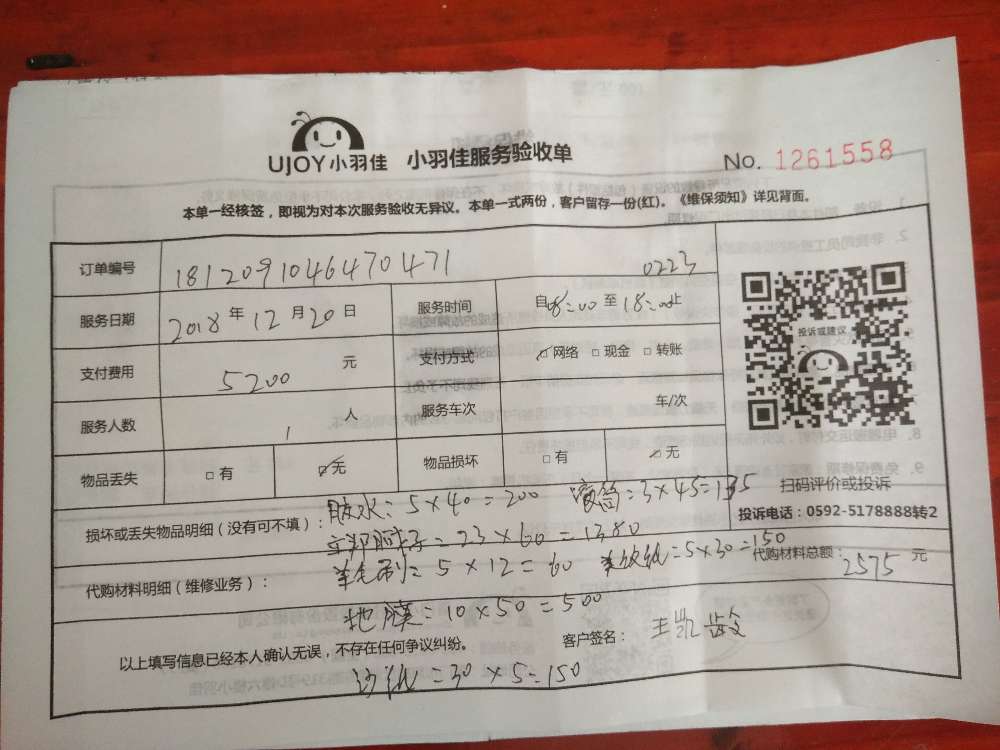 UJOY小羽佳 小羽佳服务验收单 No. 1261558
本单一经核签，即视为对本次服务验收无异议。本单一式两份，客户留存一份(红)。《维保须知》详见背面。
订单编号 181209104647 0471 0223
服务日期 2018 年 12 月 20 日 服务时间 自 08:00 至 18:00 止
支付费用 5200 元 支付方式 ☑网络 □现金 □转账
投诉或建议
服务人数 1 人 服务车次 车/次
物品丢失 □有 ☑无 物品损坏 □有 ☑无
扫码评价或投诉
投诉电话：0592-5178888转2
胶水：5×40=200 3×45=135
损坏或丢失物品明细（没有可不填）：
=23×60=1380
代购材料明细（维修业务）： 羊毛刷=5×12=60 美纹纸=5×30=150
代购材料总额： 2575 元
地膜=10×50=500
以上填写信息已经本人确认无误，不存在任何争议纠纷。 客户签名：
砂纸=30×5=150